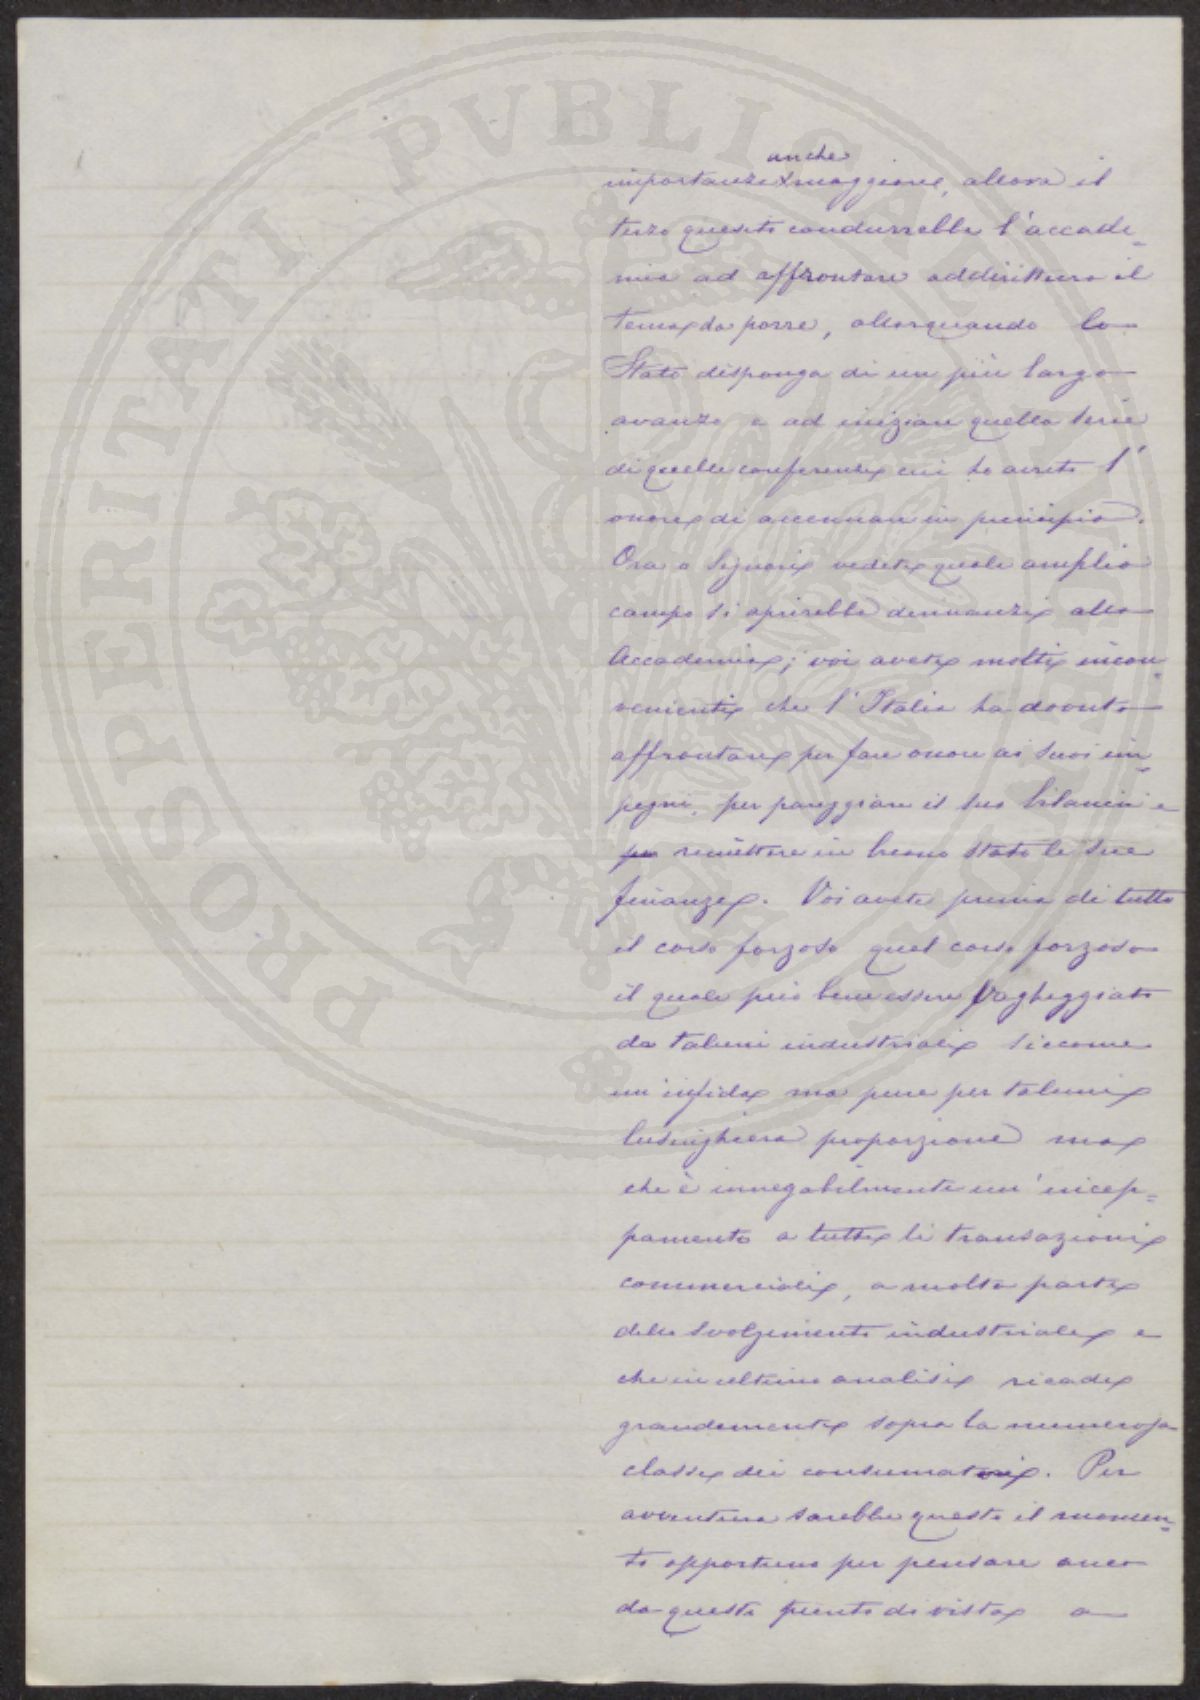 PROSPERITATI PVBLICAE AVGENDAE
anche
importanza maggiore, allora il
terzo quesito condurrebbe l'accade=
mia ad affrontare addirittura il
tema da porre, allorquando lo
Stato disponga di un più largo
avanzo e ad iniziare quella serie
di quelle conferenze cui ho avuto l'
onore di accennare in principio.
Ora o Signori vedete quale amplio
campo si aprirebbe dinnanzi alla
Accademia; voi avete molti incon=
venienti che l'Italia ha dovuto
affrontare per fare onore ai suoi im=
pegni, per pareggiare il suo bilancio e
per rimettere in buono stato le sue
finanze. Voi avete prima di tutto
il corso forzoso quel corso forzoso
il quale può bene essere vagheggiato
da taluni industriali siccome
un'infida ma pure per taluni
lusinghiera proporzione ma
che è innegabilmente un'incep=
pamento a tutte le transazioni
commerciali, a molta parte
dello svolgimento industriale e
che in ultima analisi ricade
grandemente sopra la numerosa
classe dei consumatori. Per
avventura sarebbe questo il momen=
to opportuno per pensare anco
da questo punto di vista a